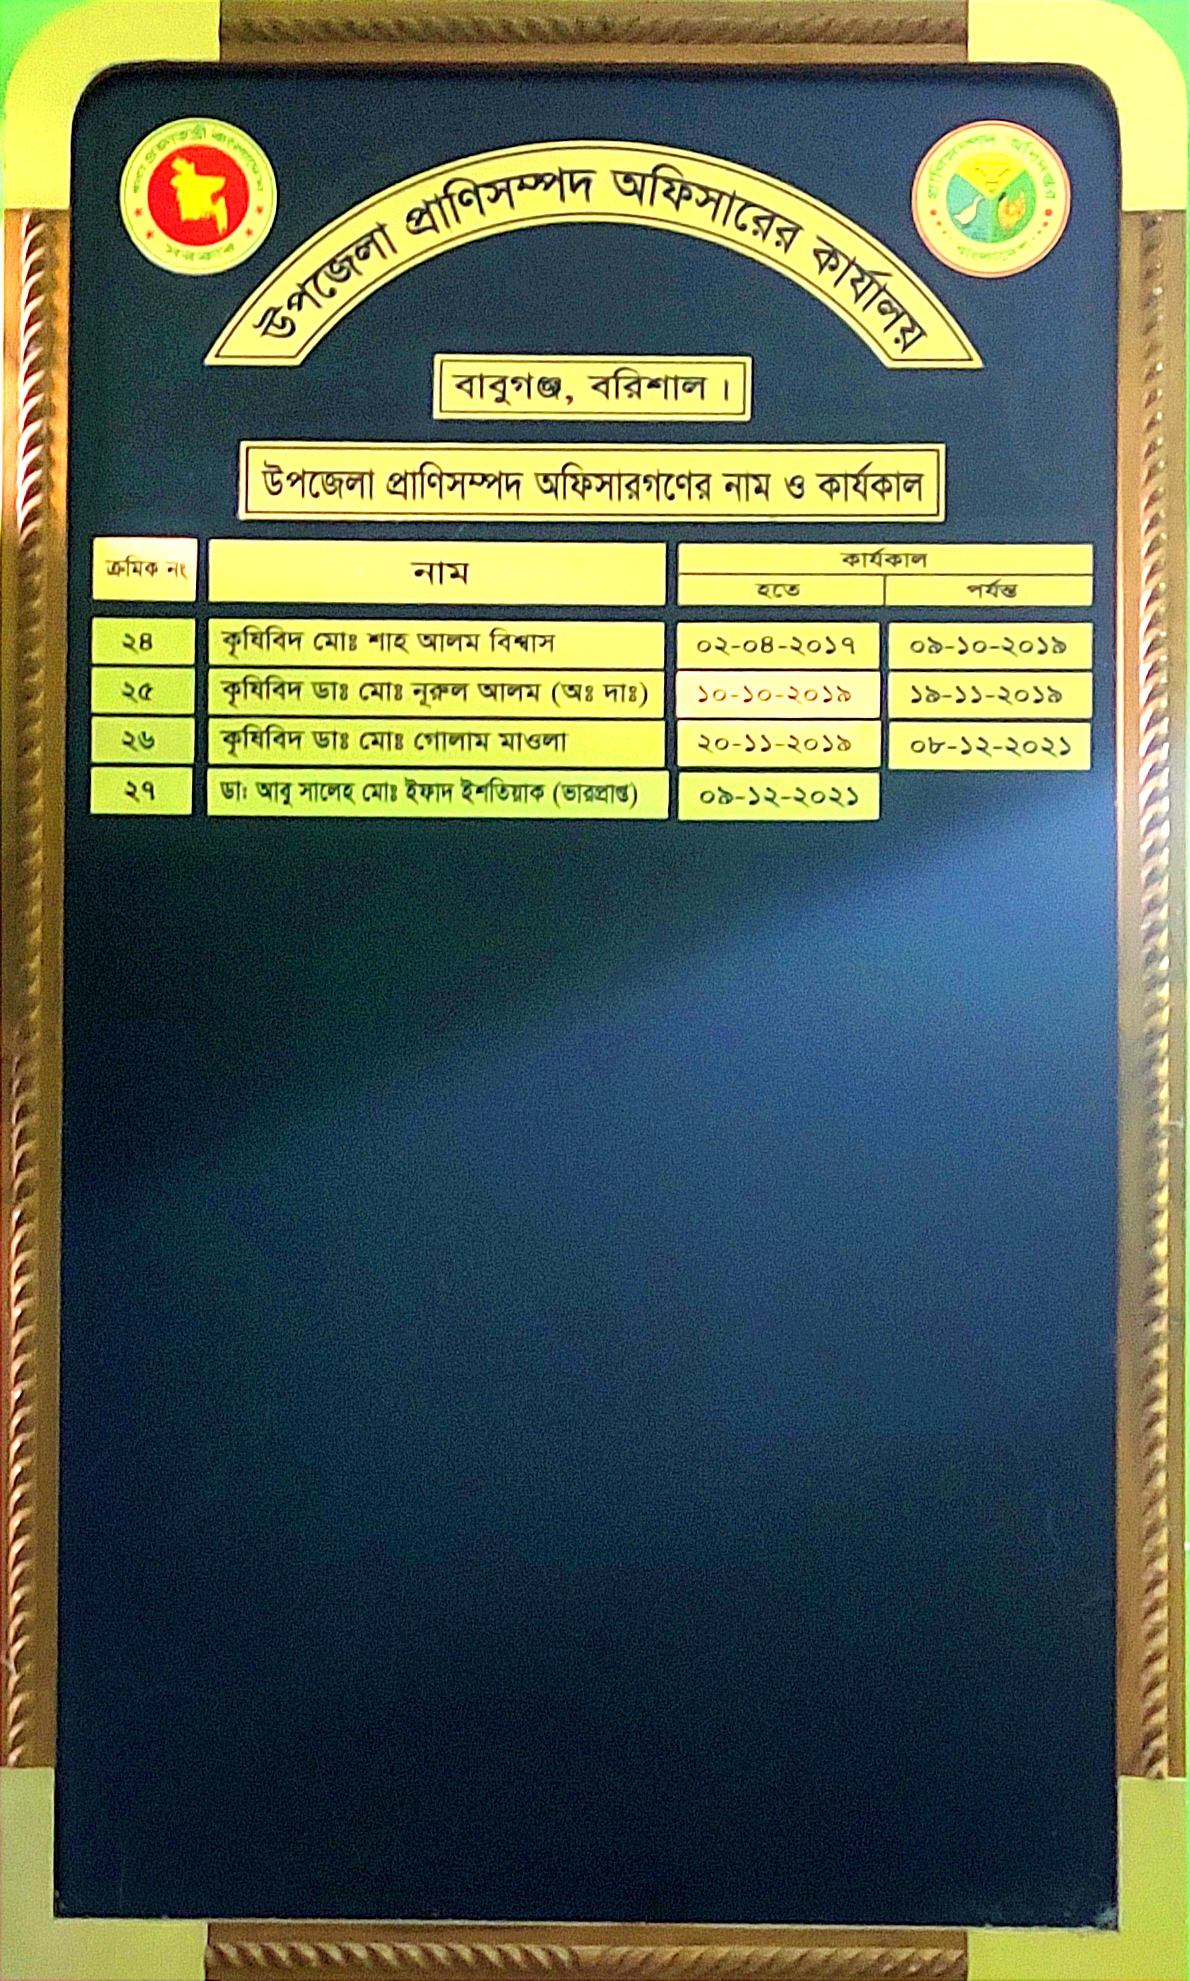 গণপ্রজাতন্ত্রী বাংলাদেশ
সরকার
প্রাণিসম্পদ অধিদপ্তর
বাংলাদেশ
উপজেলা প্রাণিসম্পদ অফিসারের কার্যালয়
বাবুগঞ্জ, বরিশাল ।
উপজেলা প্রাণিসম্পদ অফিসারগণের নাম ও কার্যকাল
ক্রমিক নং নাম কার্যকাল
হতে পর্যন্ত
২৪ কৃষিবিদ মোঃ শাহ আলম বিশ্বাস ০২-০৪-২০১৭ ০৯-১০-২০১৯
২৫ কৃষিবিদ ডাঃ মোঃ নূরুল আলম (অঃ দাঃ) ১০-১০-২০১৯ ১৯-১১-২০১৯
২৬ কৃষিবিদ ডাঃ মোঃ গোলাম মাওলা ২০-১১-২০১৯ ০৮-১২-২০২১
২৭ ডা: আবু সালেহ মোঃ ইফাদ ইশতিয়াক (ভারপ্রাপ্ত) ০৯-১২-২০২১